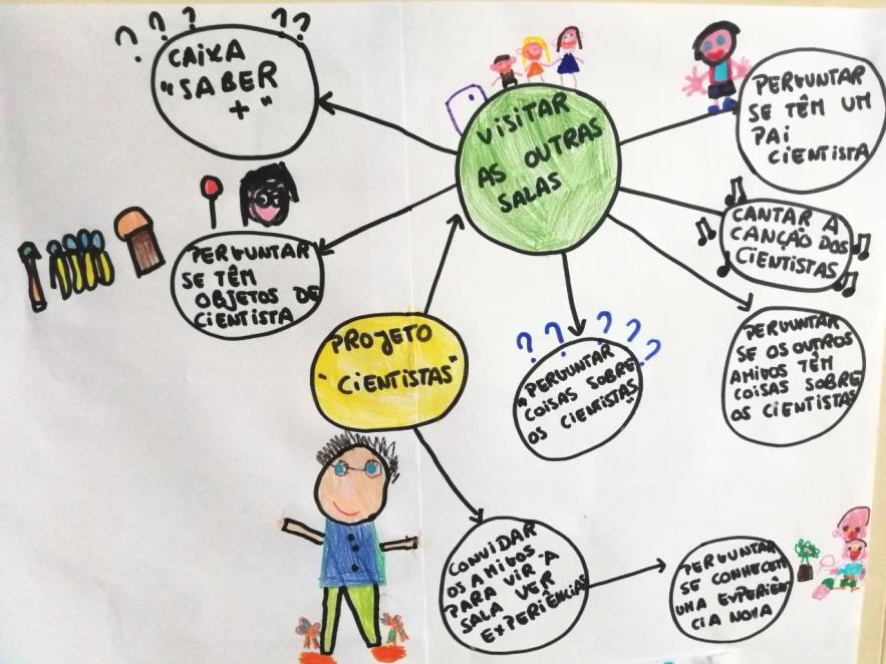 ? ? ? ? ?
CAIXA
"SABER
+"
VISITAR
AS OUTRAS
SALAS
PERGUNTAR
SE TÊM UM
PAI
CIENTISTA
CANTAR A
CANÇÃO DOS
CIENTISTAS
PERGUNTAR
SE TÊM
OBJETOS DE
CIENTISTA
PROJETO
"CIENTISTAS"
? ? ? ? ?
"PERGUNTAR
COISAS SOBRE
OS CIENTISTAS"
PERGUNTAR
SE OS OUTROS
AMIGOS TÊM
COISAS SOBRE
OS CIENTISTAS
CONVIDAR
OS AMIGOS
PARA VIR À
SALA VER
EXPERIÊNCIAS
PERGUNTAR
SE CONHECEM
UMA EXPERIÊN
CIA NOVA